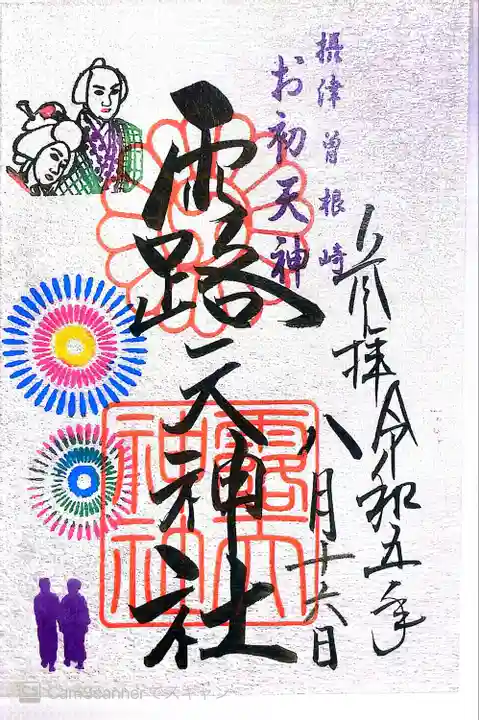 摂津曽根崎
お初天神
奉拝 令和五年
八月十六日
露天神社
露天
神社
CamScannerでスキャン